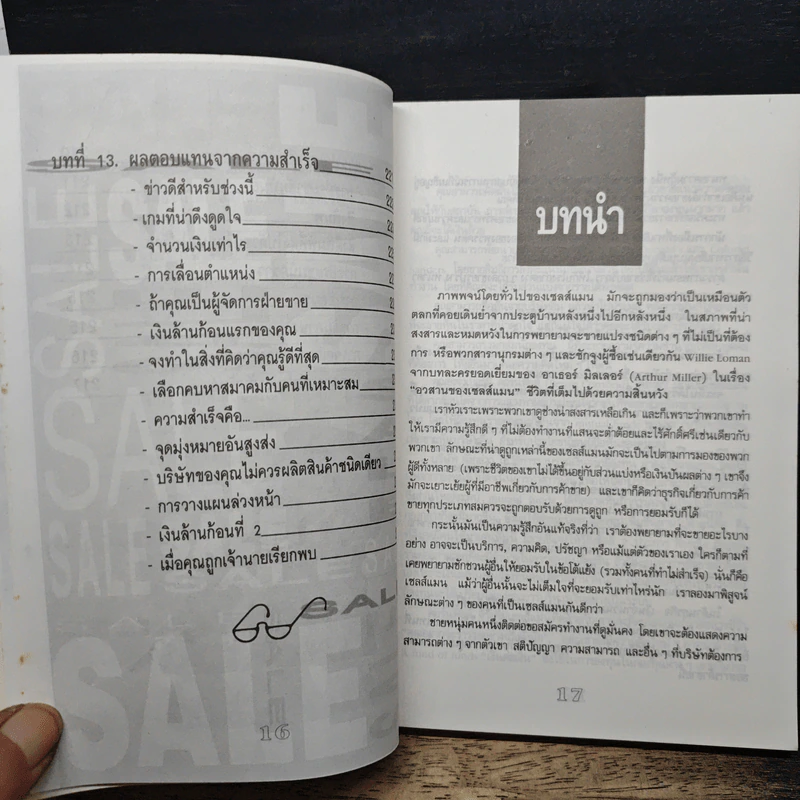 บทที่ 13. ผลตอบแทนจากความสำเร็จ
- ข่าวดีสำหรับช่วงนี้
- เกมที่น่าดึงดูดใจ
- จำนวนเงินเท่าไร
- การเลื่อนตำแหน่ง
- ถ้าคุณเป็นผู้จัดการฝ่ายขาย
- เงินล้านก้อนแรกของคุณ
- จงทำในสิ่งที่คิดว่าคุณรู้ดีที่สุด
- เลือกคบหาสมาคมกับคนที่เหมาะสม
- ความสำเร็จคือ...
- จุดมุ่งหมายอันสูงส่ง
- บริษัทของคุณไม่ควรผลิตสินค้าชนิดเดียว
- การวางแผนล่วงหน้า
- เงินล้านก้อนที่ 2
- เมื่อคุณถูกเจ้านายเรียกพบ
SALE
16
บทนำ
ภาพพจน์โดยทั่วไปของเซลส์แมน มักจะถูกมองว่าเป็นเหมือนตัว
ตลกที่คอยเดินย่ำจากประตูบ้านหลังหนึ่งไปอีกหลังหนึ่ง ในสภาพที่น่า
สงสารและหมดหวังในการพยายามจะขายแปรงชนิดต่าง ๆ ที่ไม่เป็นที่ต้อง
การ หรือพวกสารานุกรมต่าง ๆ และชักจูงผู้ซื้อเช่นเดียวกับ Willie Loman
จากบทละครยอดเยี่ยมของ อาเธอร์ มิลเลอร์ (Arthur Miller) ในเรื่อง
“อวสานของเซลส์แมน” ชีวิตที่เต็มไปด้วยความสิ้นหวัง
เราหัวเราะเพราะพวกเขาดูช่างน่าสงสารเหลือเกิน และก็เพราะว่าพวกเขาทำ
ให้เรามีความรู้สึกดี ๆ ที่ไม่ต้องทำงานที่แสนจะต่ำต้อยและไร้ศักดิ์ศรีเช่นเดียวกับ
พวกเขา ลักษณะที่น่าดูถูกเหล่านี้ของเซลส์แมนมักจะเป็นไปตามการมองของพวก
ผู้ดีทั้งหลาย (เพราะชีวิตของเขาไม่ได้ขึ้นอยู่กับส่วนแบ่งหรือเงินปันผลต่าง ๆ เขาจึง
มักจะเยาะเย้ยผู้ที่มีอาชีพเกี่ยวกับการค้าขาย) และเขาก็คิดว่าธุรกิจเกี่ยวกับการค้า
ขายทุกประเภทสมควรจะถูกตอบรับด้วยการดูถูก หรือการยอมรับก็ได้
กระนั้นมันเป็นความรู้สึกอันแท้จริงที่ว่า เราต้องพยายามที่จะขายอะไรบาง
อย่าง อาจจะเป็นบริการ, ความคิด, ปรัชญา หรือแม้แต่ตัวของเราเอง ใครก็ตามที่
เคยพยายามชักชวนผู้อื่นให้ยอมรับในข้อโต้แย้ง (รวมทั้งคนที่ทำไม่สำเร็จ) นั่นก็คือ
เซลส์แมน แม้ว่าผู้อื่นนั้นจะไม่เต็มใจที่จะยอมรับเท่าไหร่นัก เราลองมาพิสูจน์
ลักษณะต่าง ๆ ของคนที่เป็นเซลส์แมนกันดีกว่า
ชายหนุ่มคนหนึ่งติดต่อขอสมัครทำงานที่ดูมั่นคง โดยเขาจะต้องแสดงความ
สามารถต่าง ๆ จากตัวเขา สติปัญญา ความสามารถ และอื่น ๆ ที่บริษัทต้องการ
17